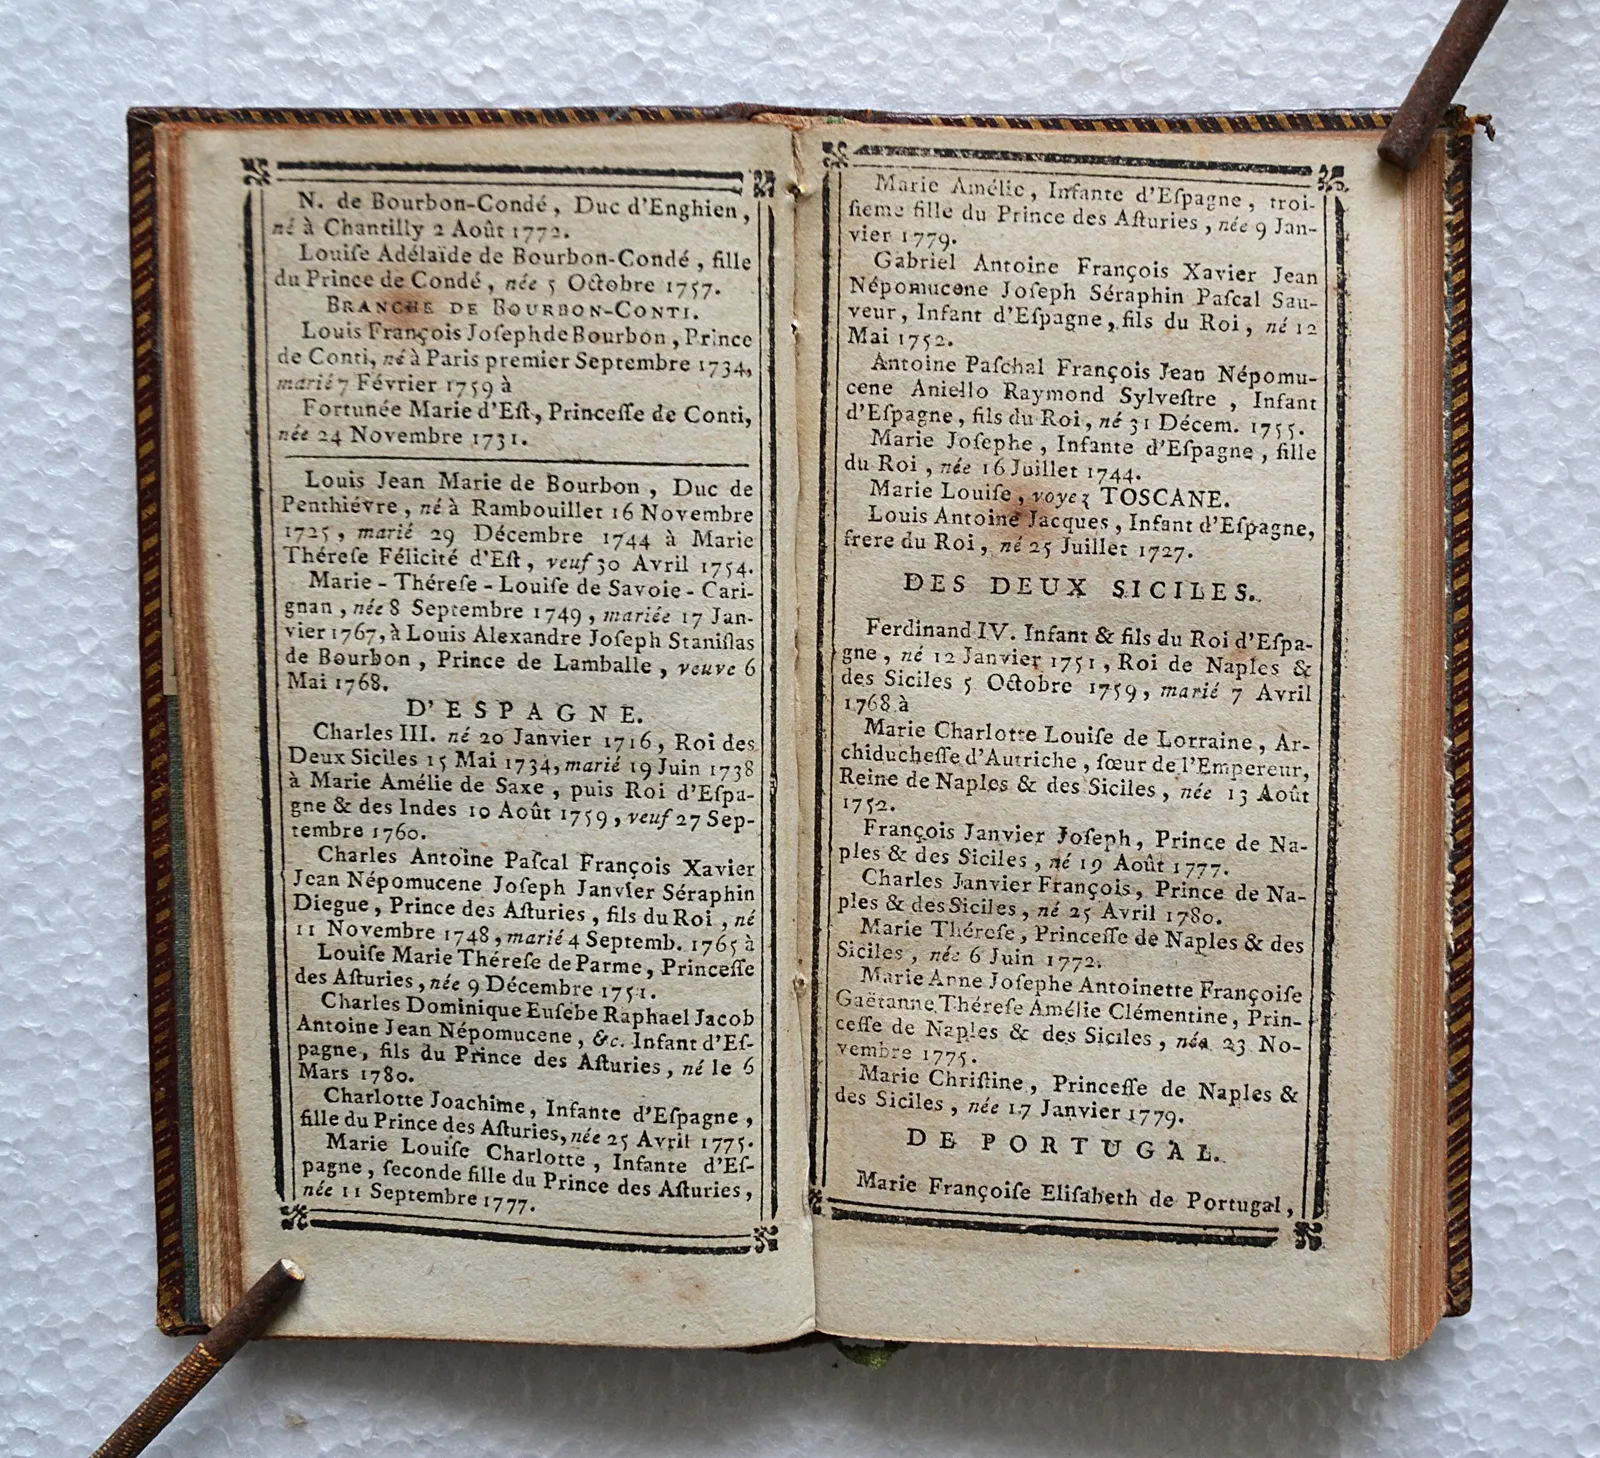 N. de Bourbon-Condé, Duc d'Enghien,
né à Chantilly 2 Août 1772.
Louiſe Adélaïde de Bourbon-Condé, fille
du Prince de Condé, née 5 Octobre 1757.
BRANCHE DE BOURBON-CONTI.
Louis François Joſeph de Bourbon, Prince
de Conti, né à Paris premier Septembre 1734,
marié 7 Février 1759 à
Fortunée Marie d'Eſt, Princeſſe de Conti,
née 24 Novembre 1731.
Louis Jean Marie de Bourbon, Duc de
Penthiévre, né à Rambouillet 16 Novembre
1725, marié 29 Décembre 1744 à Marie
Théreſe Félicité d'Eſt, veuf 30 Avril 1754.
Marie-Théreſe-Louiſe de Savoie-Cari-
gnan, née 8 Septembre 1749, mariée 17 Jan-
vier 1767, à Louis Alexandre Joſeph Staniſlas
de Bourbon, Prince de Lamballe, veuve 6
Mai 1768.
D'ESPAGNE.
Charles III. né 20 Janvier 1716, Roi des
Deux Siciles 15 Mai 1734, marié 19 Juin 1738
à Marie Amélie de Saxe, puis Roi d'Eſpa-
gne & des Indes 10 Août 1759, veuf 27 Sep-
tembre 1760.
Charles Antoine Paſcal François Xavier
Jean Népomucene Joſeph Janvier Séraphin
Diegue, Prince des Aſturies, fils du Roi, né
11 Novembre 1748, marié 4 Septemb. 1765 à
Louiſe Marie Théreſe de Parme, Princeſſe
des Aſturies, née 9 Décembre 1751.
Charles Dominique Euſebe Raphael Jacob
Antoine Jean Népomucene, &c. Infant d'Eſ-
pagne, fils du Prince des Aſturies, né le 6
Mars 1780.
Charlotte Joachime, Infante d'Eſpagne,
fille du Prince des Aſturies, née 25 Avril 1775.
Marie Louiſe Charlotte, Infante d'Eſ-
pagne, ſeconde fille du Prince des Aſturies,
née 11 Septembre 1777.
Marie Amélie, Infante d'Eſpagne, troi-
ſieme fille du Prince des Aſturies, née 9 Jan-
vier 1779.
Gabriel Antoine François Xavier Jean
Népomucene Joſeph Séraphin Paſcal Sau-
veur, Infant d'Eſpagne, fils du Roi, né 12
Mai 1752.
Antoine Paſchal François Jean Népomu-
cene Aniello Raymond Sylveſtre, Infant
d'Eſpagne, fils du Roi, né 31 Décem. 1755.
Marie Joſephe, Infante d'Eſpagne, fille
du Roi, née 16 Juillet 1744.
Marie Louiſe, voyez TOSCANE.
Louis Antoine Jacques, Infant d'Eſpagne,
frere du Roi, né 25 Juillet 1727.
DES DEUX SICILES.
Ferdinand IV. Infant & fils du Roi d'Eſpa-
gne, né 12 Janvier 1751, Roi de Naples &
des Siciles 5 Octobre 1759, marié 7 Avril
1768 à
Marie Charlotte Louiſe de Lorraine, Ar-
chiducheſſe d'Autriche, ſœur de l'Empereur,
Reine de Naples & des Siciles, née 13 Août
1752.
François Janvier Joſeph, Prince de Na-
ples & des Siciles, né 19 Août 1777.
Charles Janvier François, Prince de Na-
ples & des Siciles, né 25 Avril 1780.
Marie Théreſe, Princeſſe de Naples & des
Siciles, née 6 Juin 1772.
Marie Anne Joſephe Antoinette Françoiſe
Gaëtanne Théreſe Amélie Clémentine, Prin-
ceſſe de Naples & des Siciles, née 23 No-
vembre 1775.
Marie Chriſtine, Princeſſe de Naples &
des Siciles, née 17 Janvier 1779.
DE PORTUGAL.
Marie Françoiſe Eliſabeth de Portugal,